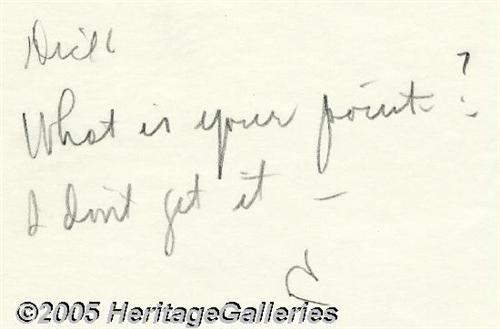 What is your point?
I don't get it —
C
©2005 HeritageGalleries